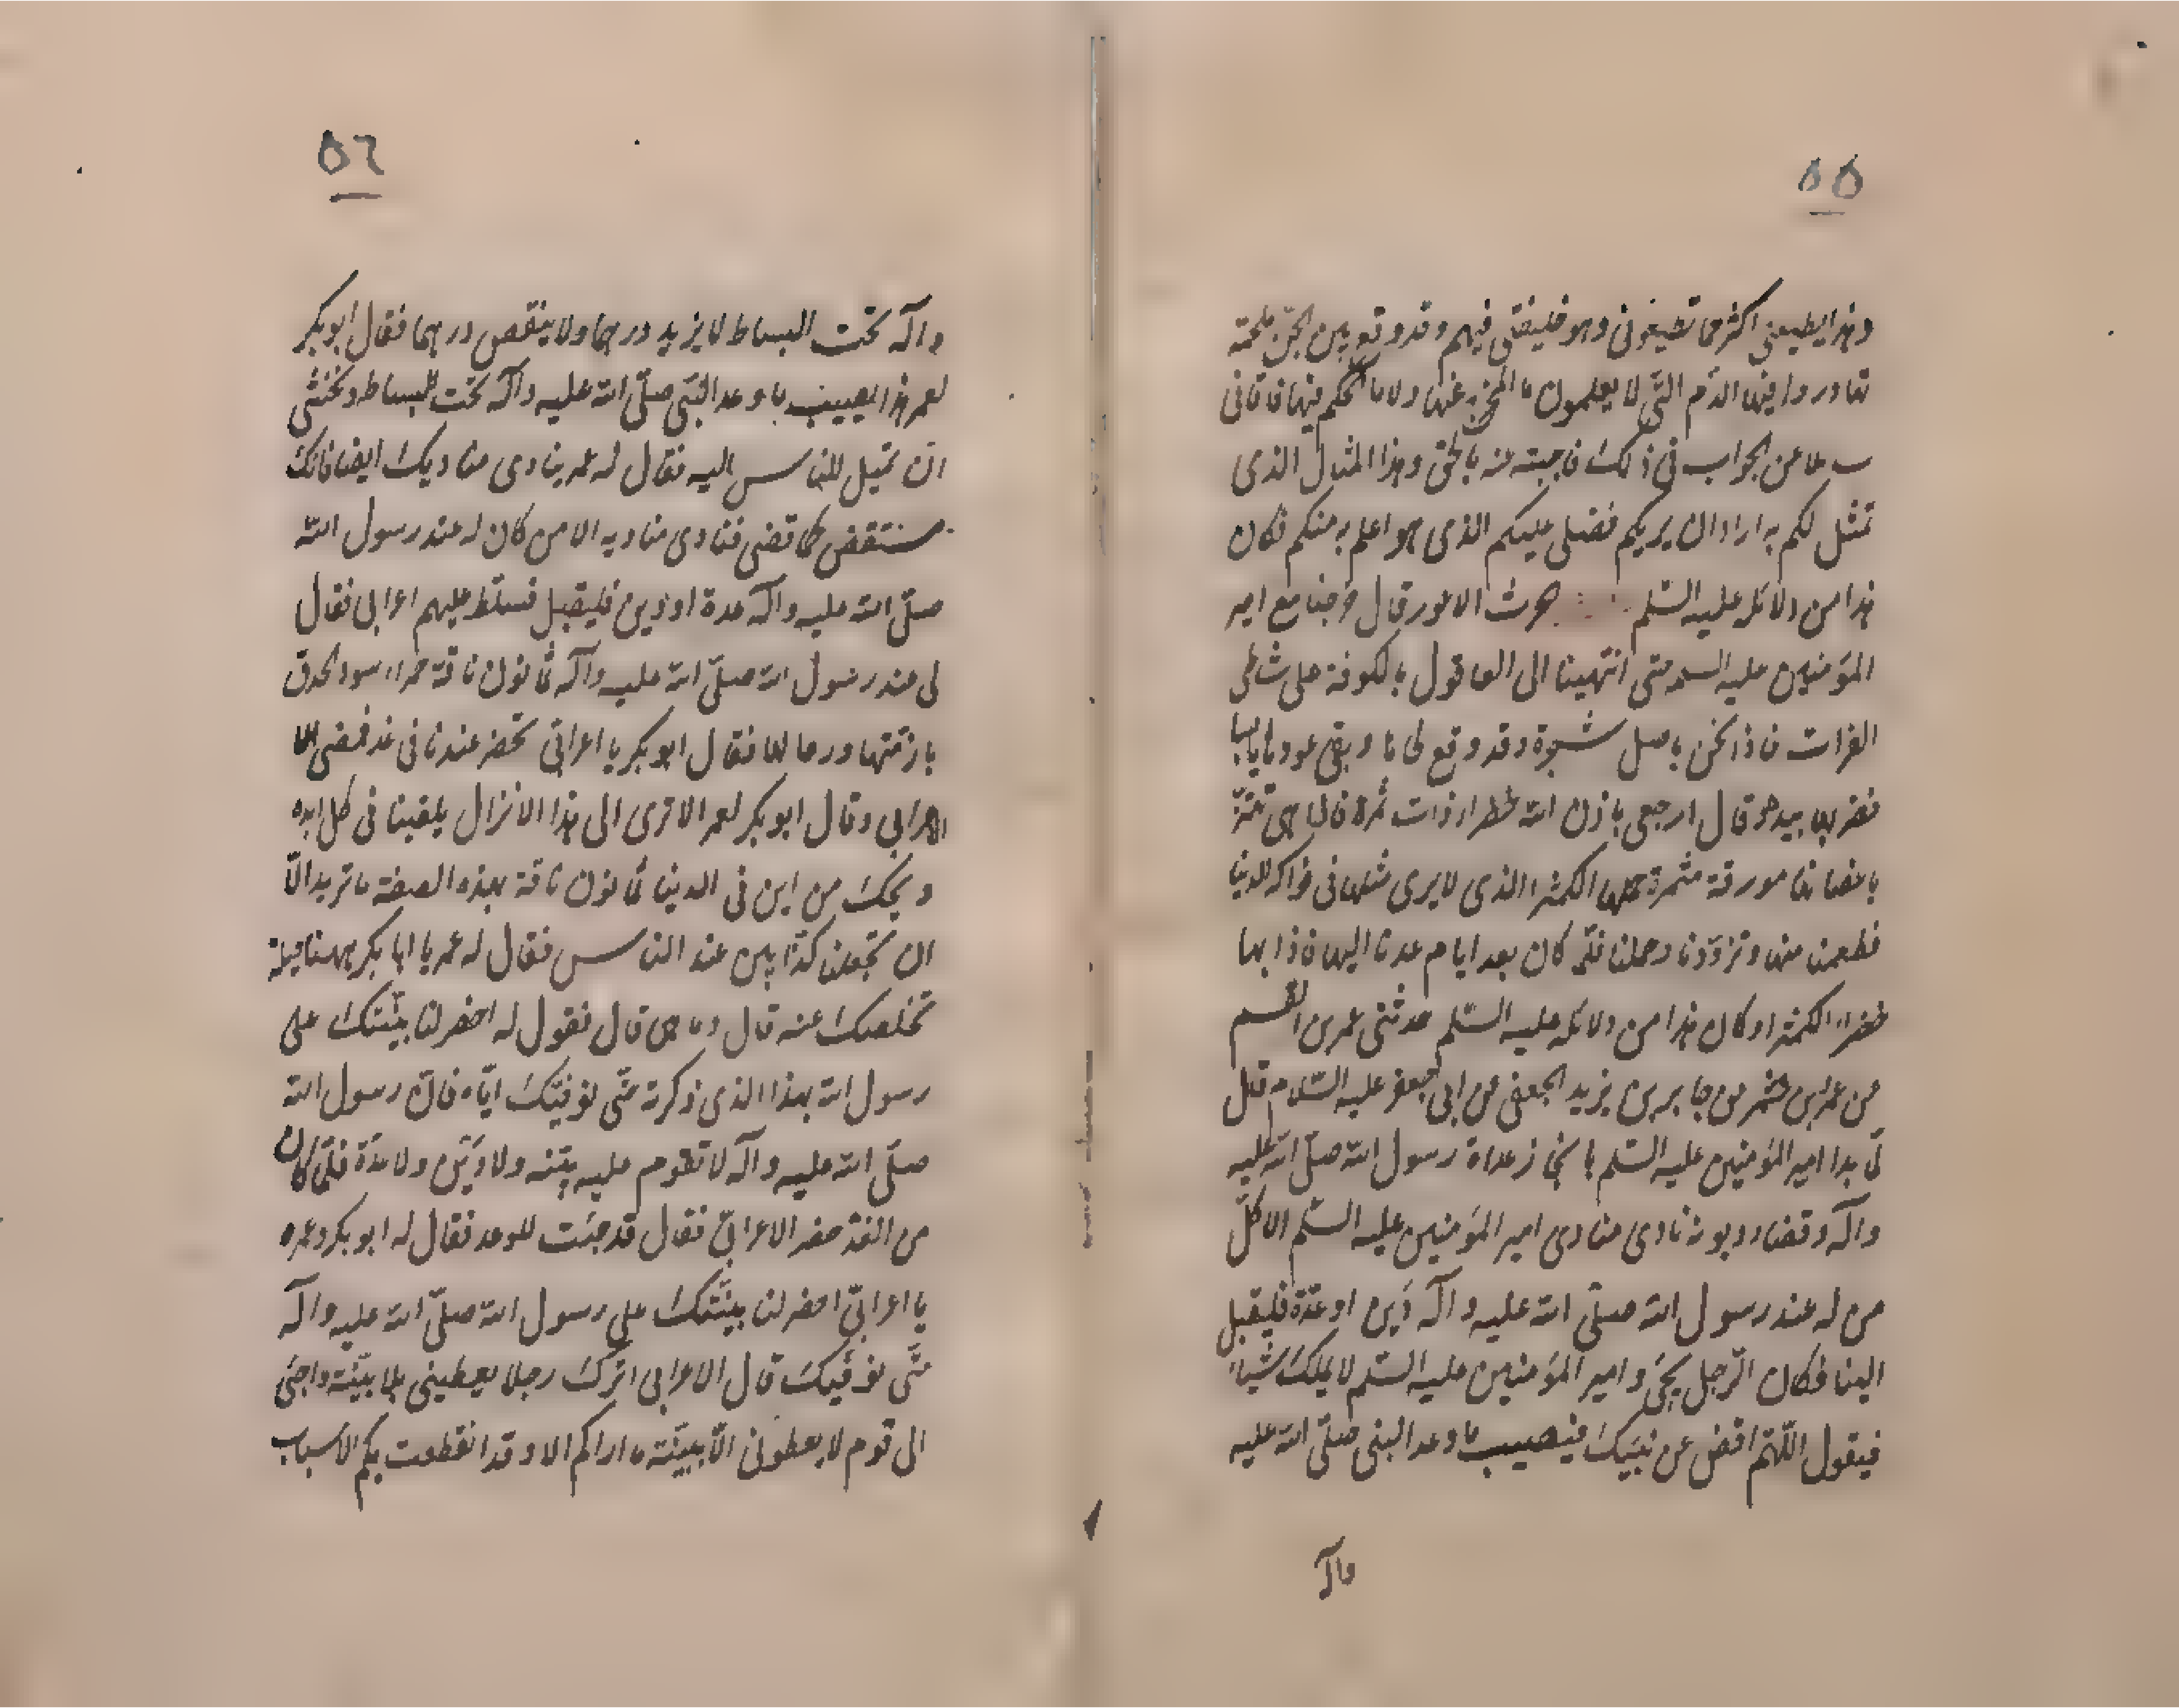 ٥٥
وهذا يطيعني اكثر مما تطيعوني وهو خليفتي فيهم وقد وقع بين الجن ملحمة
تهادروا فيها الدم التي لا يعلمون ما المخرج عنها ولا ما الحكم فيها فاتاني
سائلا عن الجواب في ذلك فاجبته عنه بالحق وهذا المثال الذي
تمثل لكم به اراد ان يريكم فضلي عليكم الذي هو اعلم به منكم فكان
هذا من دلائله عليه السلم حرث الاعور قال خرجنا مع امير
المؤمنين عليه السلم حتى انتهينا الى العاقول بالكوفة على شاطى
الفرات فاذا نحن باصل شجرة وقد وقع لحاؤها وبقي عودها يابسا
فضربها بيده وقال ارجعي باذن الله خضراء ذات ثمرة فاذا هي تهتز
باغصانها مورقة مثمرة حملها الكمثرا الذي لا يرى مثلها في فواكه الدنيا
فطعمنا منها وتزودنا وحملنا فلما كان بعد ايام عدنا اليها فاذا بها
خضراء الكمثرا وكان هذا من دلائله عليه السلم حدثني عمر بن القسم
عن عمر بن شمر عن جابر بن يزيد الجعفي عن ابي جعفر عليه السلام قال
لما بدا امير المؤمنين عليه السلم بانجاز عداة رسول الله صلى الله عليه
وآله وقضاء ديونه نادى منادى امير المؤمنين عليه السلم الا كل
من له عند رسول الله صلى الله عليه وآله دين او عدة فليقبل
الينا فكان الرجل يجئ وامير المؤمنين عليه السلم لا يملك شيئا
فيقول اللهم اقض عن نبيك فيصيب ما وعد النبي صلى الله عليه
وآله
٥٦
وآله تحت البساط لا يزيد درهما ولا ينقص درهما فقال ابو بكر
لعمر هذا يصيب ما وعد النبي صلى الله عليه وآله تحت البساط ونخشى
ان تميل الناس اليه فقال له عمر ينادى مناديك ايضا فانك
ستقضى كما قضى فنادى مناديه الا من كان له عند رسول الله
صلى الله عليه وآله عدة او دين فليقبل فسلط عليهم اعرابي فقال
لي عند رسول الله صلى الله عليه وآله ثمانون ناقة حمراء سود الحدق
بازمتها ورحالها فقال ابو بكر يا اعرابي تحضر عندنا في غد فمضى
الاعرابي وقال ابو بكر لعمر الا ترى الى هذا الانزال يلقينا في كل ابدة
ويحك من اين في الدنيا ثمانون ناقة بهذه الصفة ما تريد الا
ان تجعلنا كذابين عند الناس فقال له عمر يا ابا بكر ههنا حيلة
تخلصك عنه قال وما هي قال نقول له احضر لنا بينتك على
رسول الله بهذا الذي ذكرته حتى نوفيك اياه فان رسول الله
صلى الله عليه وآله لا تقوم عليه بينة ولا دين ولا عدة فلما كان
من الغد حضر الاعرابي فقال قد جئت للوعد فقال له ابو بكر وعمر
يا اعرابي احضر لنا بينتك على رسول الله صلى الله عليه وآله
حتى نوفيك قال الاعرابي اترك رجلا يعطيني بلا بينة واجئ
الى قوم لا يعطوني الا ببينة ما اراكم الا وقد انقطعت بكم الاسباب